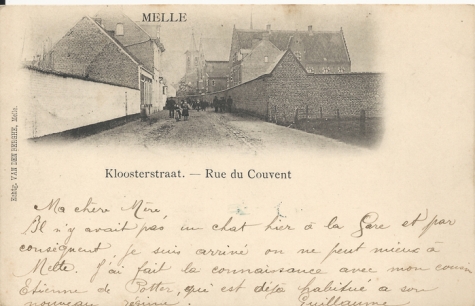 MELLE
Edtg. VAN DEN BERGHE, Melle.
Kloosterstraat. — Rue du Couvent
Ma chère Mère
Il n'y avait pas un chat hier à la Gare et par
conséquent je suis arrivé on ne peut mieux à
Melle. J'ai fait la connaissance avec mon cousin
Etienne de Potter, qui est déjà habitué a son
nouveau régime. Guillaume